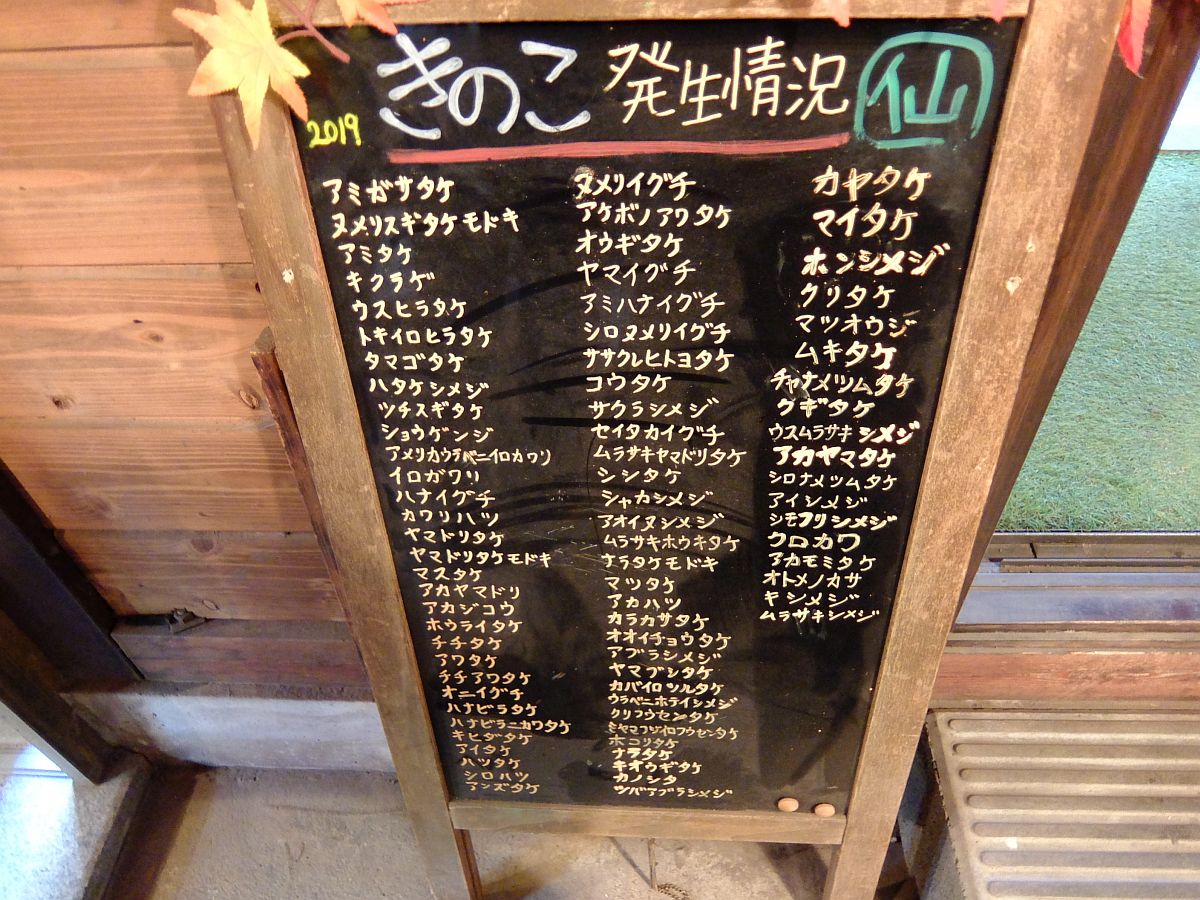 2019
きのこ 発生情況 仙
アミガサタケ
ヌメリスギタケモドキ
アミタケ
キクラゲ
ウスヒラタケ
トキイロヒラタケ
タマゴタケ
ハタケシメジ
ツチスギタケ
ショウゲンジ
アメリカウラベニイロガワリ
イロガワリ
ハナイグチ
カワリハツ
ヤマドリタケ
ヤマドリタケモドキ
マスタケ
アカヤマドリ
アカジコウ
ホウライタケ
チチタケ
アワタケ
チチアワタケ
オニイグチ
ハナビラタケ
ハナビラニカワタケ
キヒダタケ
アイタケ
ハツタケ
シロハツ
アンズタケ
ヌメリイグチ
アケボノアワタケ
オウギタケ
ヤマイグチ
アミハナイグチ
シロヌメリイグチ
ササクレヒトヨタケ
コウタケ
サクラシメジ
セイタカイグチ
ムラサキヤマドリタケ
シシタケ
シャカシメジ
アオイヌシメジ
ムラサキホウキタケ
ナラタケモドキ
マツタケ
アカハツ
カラカサタケ
オオイチョウタケ
アブラシメジ
ヤマブシタケ
カバイロツルタケ
ウラベニホテイシメジ
クリフウセンタケ
ミヤマフジイロフウセンタケ
ホコリタケ
ナラタケ
キオウギタケ
カノシタ
ツバアブラシメジ
カヤタケ
マイタケ
ホンシメジ
クリタケ
マツオウジ
ムキタケ
チャナメツムタケ
クギタケ
ウスムラサキシメジ
アカヤマタケ
シロナメツムタケ
アイシメジ
シモフリシメジ
クロカワ
アカモミタケ
オトメノカサ
キシメジ
ムラサキシメジ